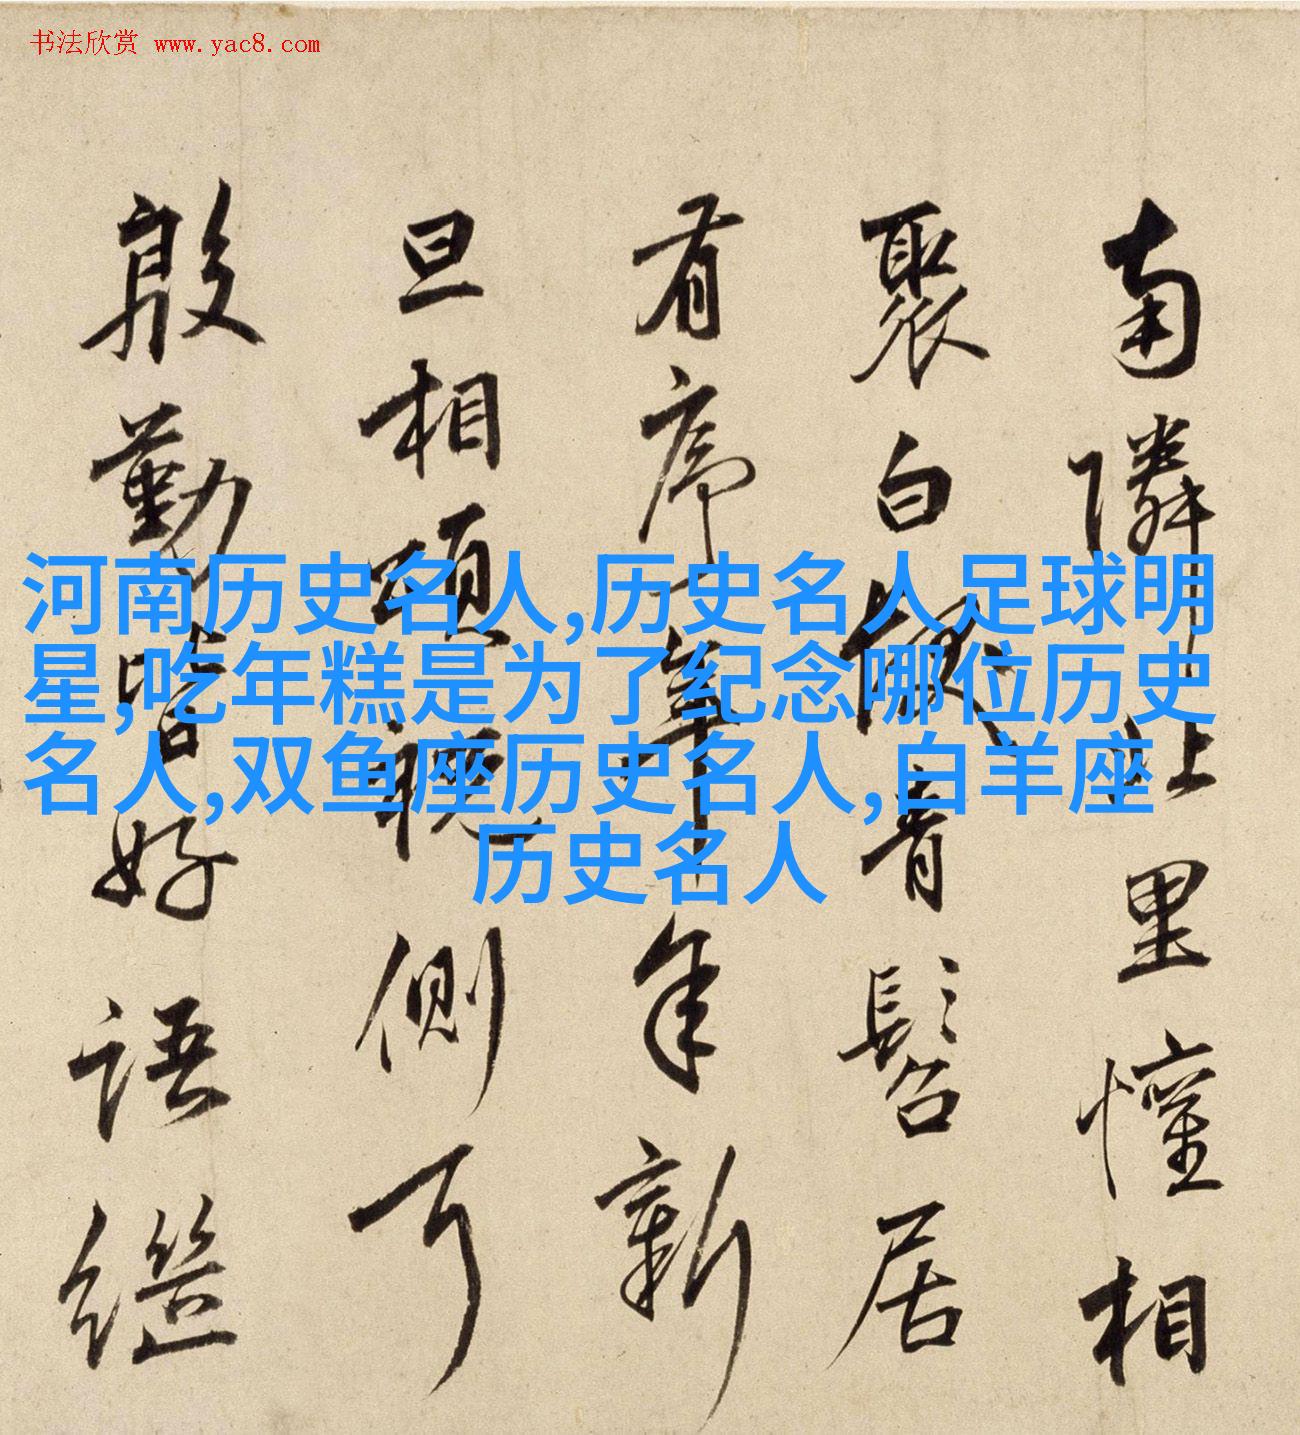 书法欣赏 www.yac8.com
河南历史名人,历史名人足球明
星,吃年糕是为了纪念哪位历史
名人,双鱼座历史名人,白羊座
历史名人
南隣北里懽相
聚白髮青髫居
有序年年年新
旦相頭親側耳
殷勤皆好語繼